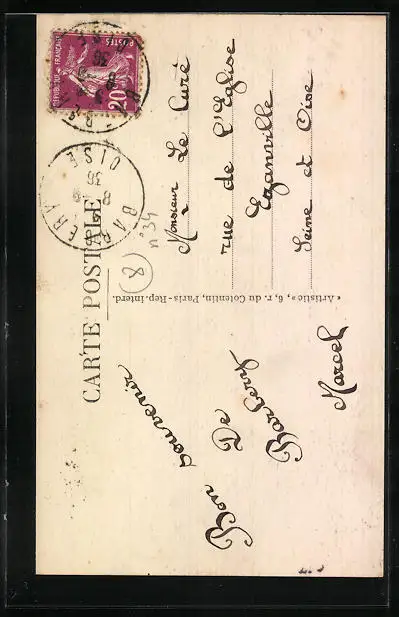 CARTE POSTALE
Bon
souvenir
De
Barbery
Marcel
« Artistic », 6, r. du Cotentin, Paris - Rep. interd.
RÉPUBLIQUE FRANÇAISE
POSTES
20
BARBERY
OISE
8
36
n°34
8
Monsieur Le Curé
rue de l'Eglise
Ezanville
Seine et Oise